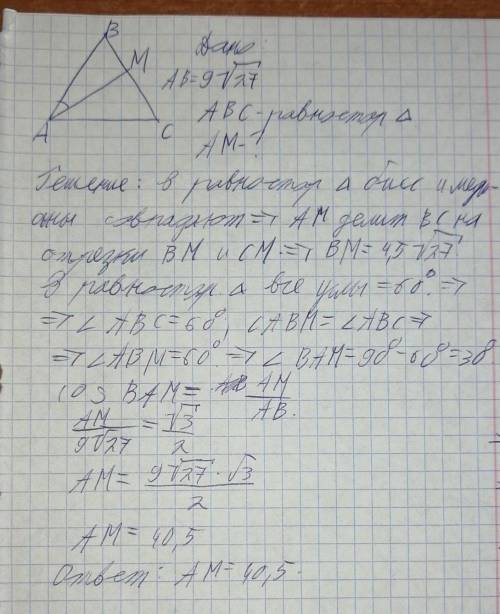 B
M
A
C
Дано:
AB=9√27
ABC-равностор △
AM-?
Решение: в равностор △ бисс и меди-
аны совпадают => AM делит BC на
отрезки BM и CM => BM=4,5√27
В равностор. △ все углы =60° =>
=> ∠ABC=60°, ∠ABM=∠ABC =>
=> ∠ABM=60° => ∠BAM=90°-60°=30°
cos BAM= AM/AB.
AM/9√27 = √3/2
AM= 9√27·√3/2
AM=40,5
Ответ: AM=40,5.